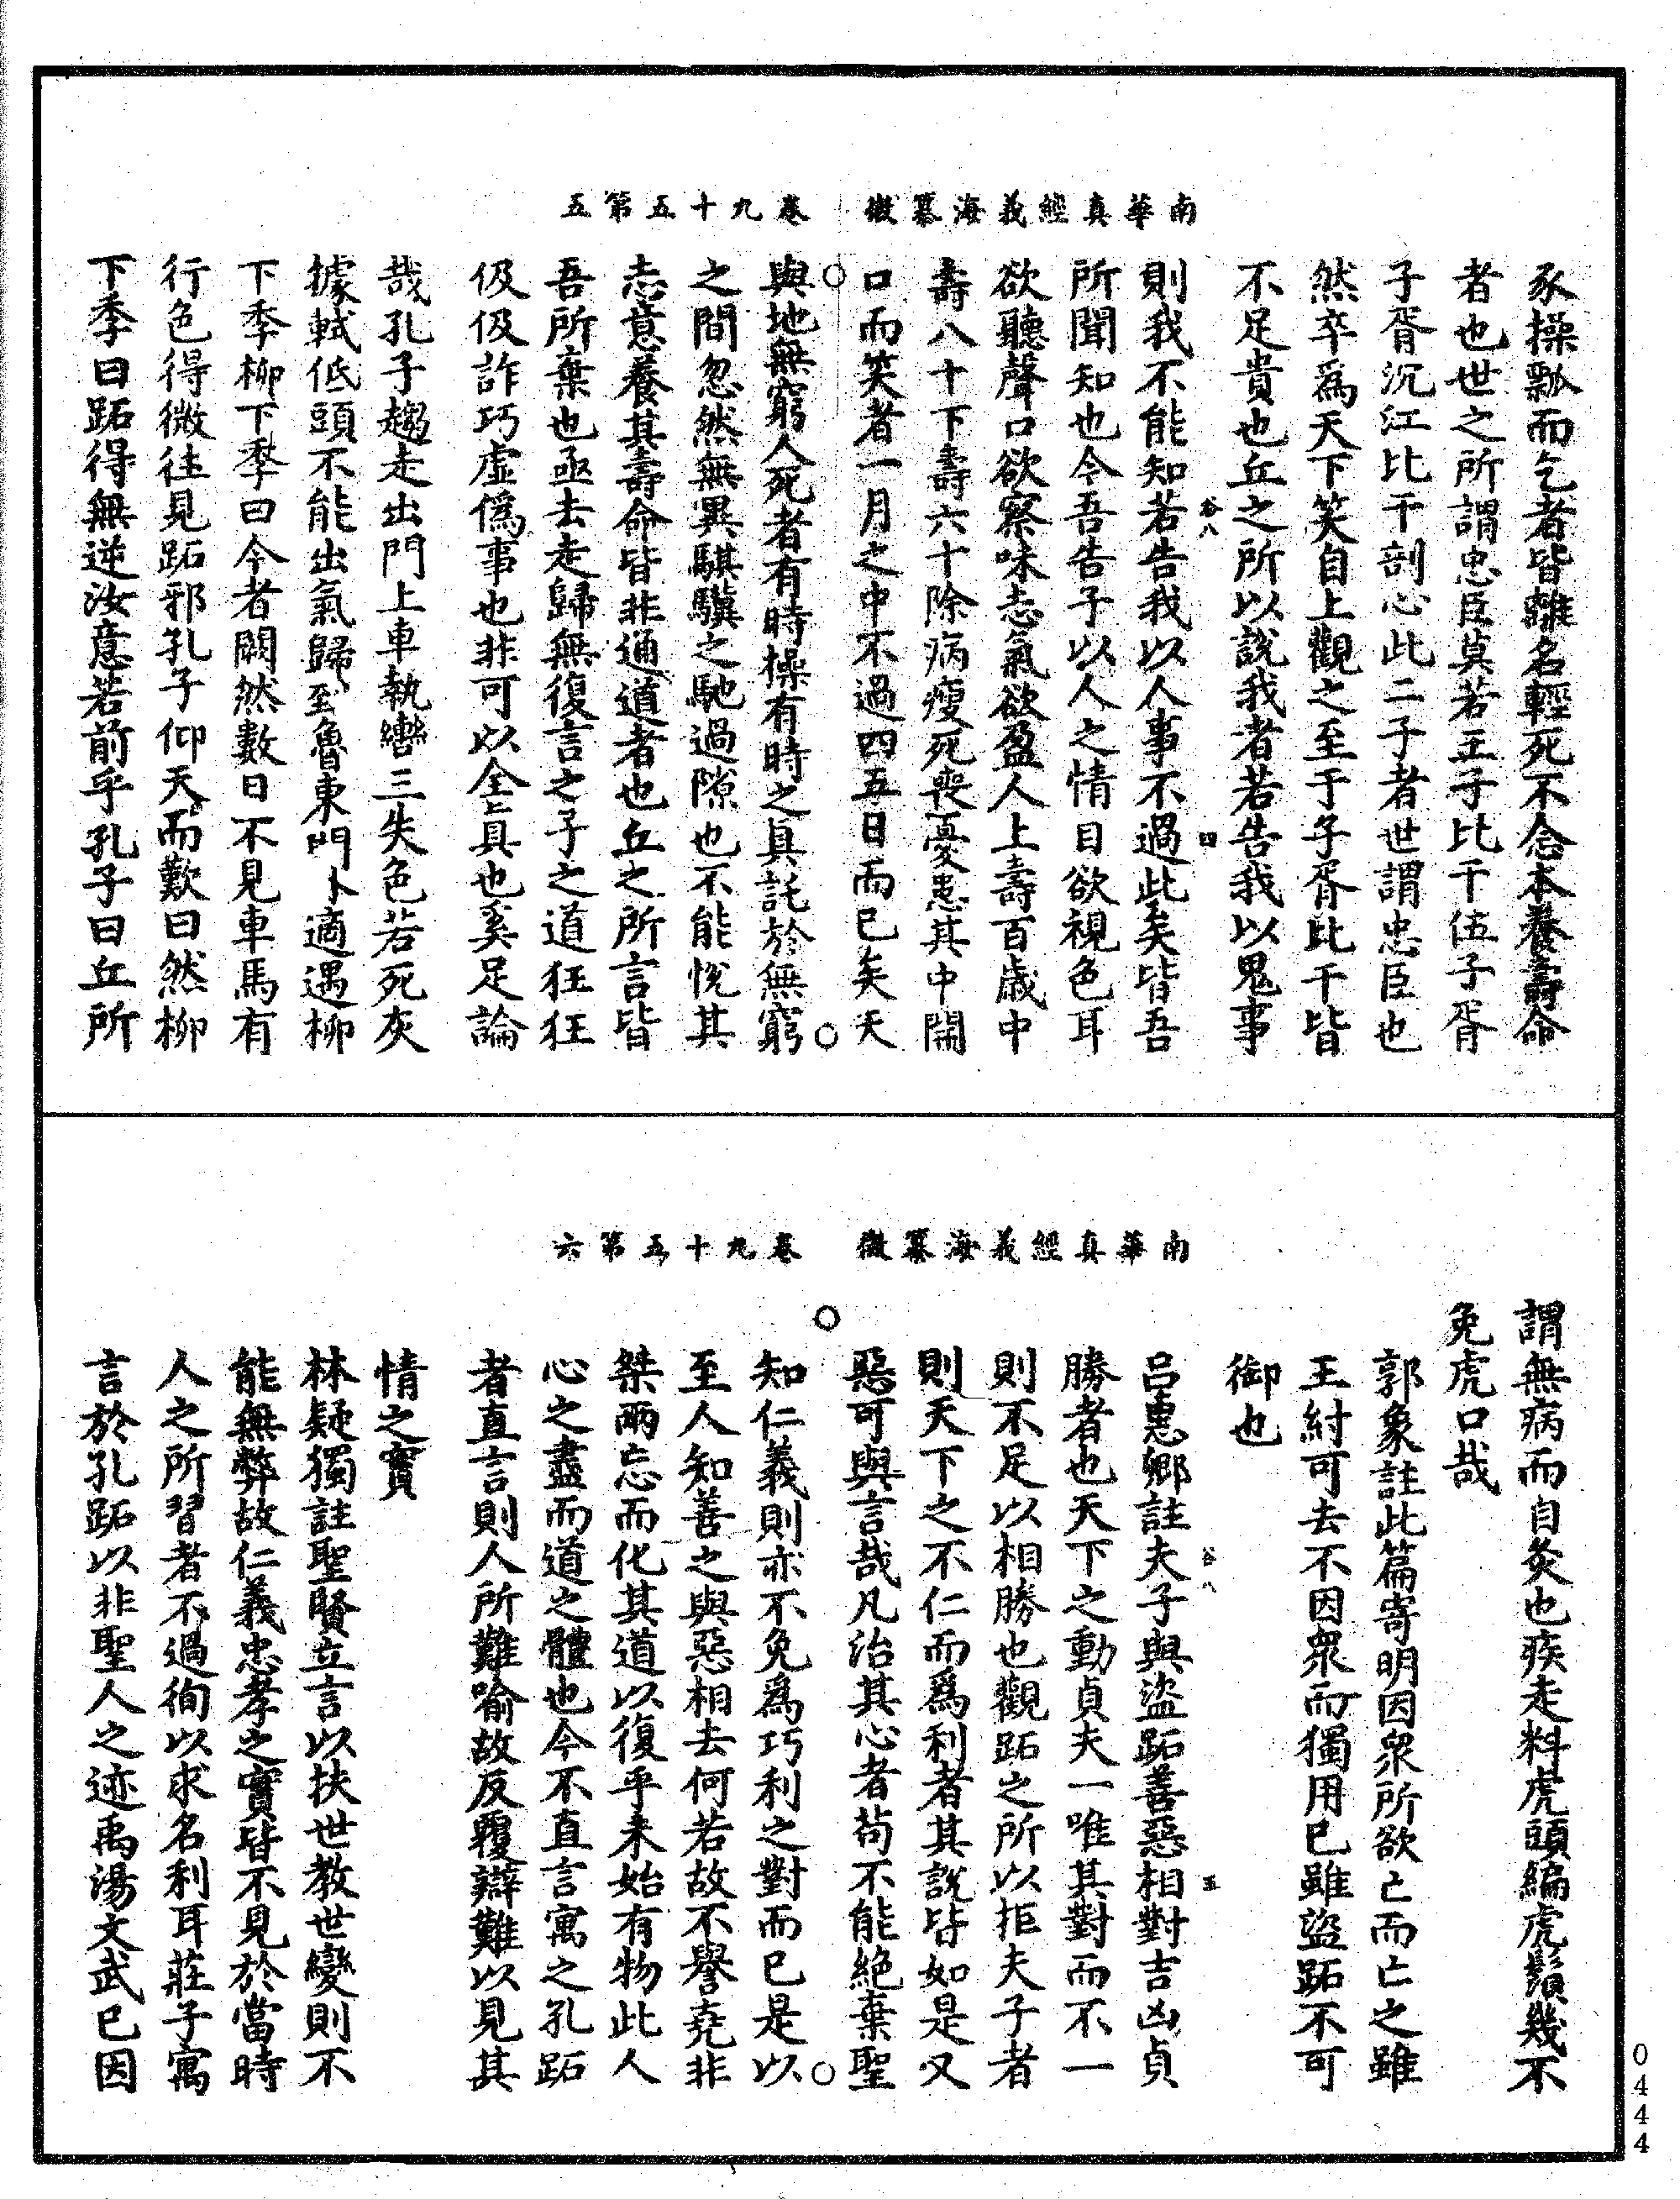 南華真經義海纂微　卷九十五第五
豕操瓢而乞者皆離名輕死不念本養壽命
者也世之所謂忠臣莫若王子比干伍子胥
子胥沉江比干剖心此二子者世謂忠臣也
然卒爲天下笑自上觀之至于子胥比干皆
不足貴也丘之所以說我者若告我以鬼事
則我不能知若告我以人事不過此矣皆吾
所聞知也今吾告子以人之情目欲視色耳
欲聽聲口欲察味志氣欲盈人上壽百歲中
壽八十下壽六十除病瘦死喪憂患其中開
口而笑者一月之中不過四五日而已矣天
與地無窮人死者有時操有時之具託於無窮
之間忽然無異騏驥之馳過隙也不能恱其
志意養其壽命皆非通道者也丘之所言皆
吾所棄也亟去走歸無復言之子之道狂狂
伋伋詐巧虛僞事也非可以全真也奚足論
哉孔子趨走出門上車執轡三失色若死灰
據軾低頭不能出氣歸至魯東門卜適遇柳
下季柳下季曰今者闕然數日不見車馬有
行色得微往見跖邪孔子仰天而歎曰然柳
下季曰跖得無逆汝意若前乎孔子曰丘所
南華真經義海纂微　卷九十五第六
謂無病而自灸也疾走料虎頭編虎鬚幾不
免虎口哉
郭象註此篇寄明因衆所欲亡而亡之雖
王紂可去不因衆而獨用已雖盜跖不可
御也
吕惠卿註夫子與盜跖善惡相對吉凶貞
勝者也天下之動貞夫一唯其對而不一
則不足以相勝也觀跖之所以拒夫子者
則天下之不仁而爲利者其說皆如是又
惡可與言哉凡治其心者苟不能絶棄聖
知仁義則亦不免爲巧利之對而已是以
至人知善之與惡相去何若故不譽堯非
桀兩忘而化其道以復乎未始有物此人
心之盡而道之體也今不直言寓之孔跖
者直言則人所難喻故反覆辯難以見其
情之實
林疑獨註聖賢立言以扶世教世變則不
能無弊故仁義忠孝之實皆不見於當時
人之所習者不過徇以求名利耳莊子寓
言於孔跖以非聖人之迹禹湯文武已因
0444